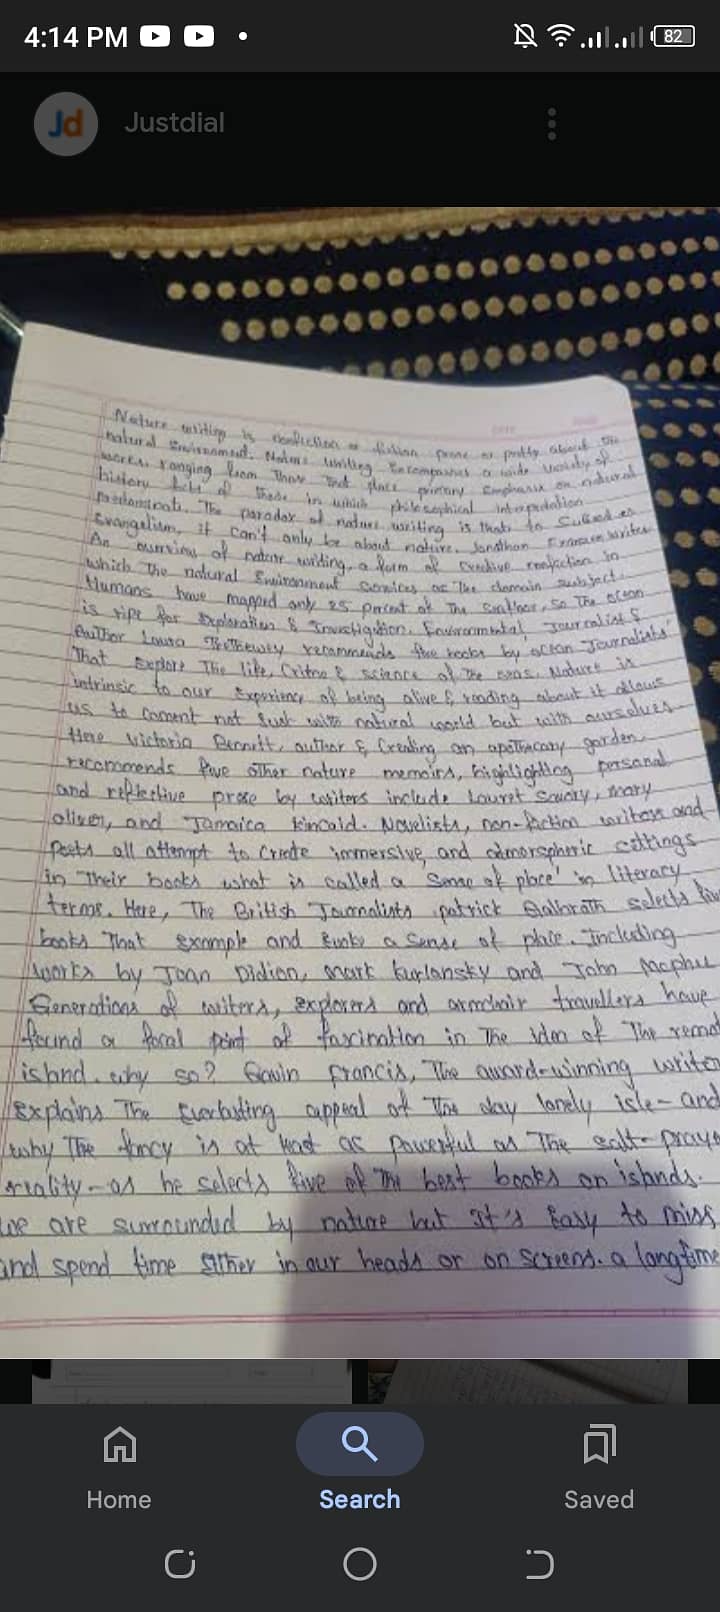 4:14 PM
82
Jd Justdial
Nature writing is nonfiction or fiction prose or about the
natural Environment. Nature writing Encompasses a wide variety of
works, ranging from those that place primary Emphasis on natural
history facts to those in which philosophical interpretation
predominate. The paradox of nature writing is that to succeed as
Evangelism, it can't only be about nature. Jonathan Franzen writes
An overview of nature writing, a form of Creative nonfiction in
which The natural Environment Services as The domain subject.
Humans have mapped only 25 percent of The , So The ocean
is ripe for Exploration & Investigation. Environmental Journalist &
Author Laura Trethewey recommends five books by ocean Journalists'
That Explore The life, & science of The seas. Nature is
intrinsic to our Experience of being alive & reading about it allows
us to not Just with natural world but with ourselves
Here Victoria Bennett, author & Creating an apothecary garden
recommends five other nature memoirs, highlighting personal
and reflective prose by writers include Savoy, mary
oliver, and Jamaica kincaid. Novelists, non-fiction writers and
Poets all attempt to Create immersive and settings
in Their books what is called a Sense of place' in literacy
terms. Here, The British Journalists patrick Galbrath selects
books That Example and Evoke a Sense of place. Including
works by Joan Didion, mark kurlansky and John
Generations of writers, explorers and armchair travellers have
found a focal point of fascination in The idea of The
island. why so? Gavin Francis, The award-winning
Explains The Everlasting appeal of The lonely isle- and
why The fancy is at least as powerful as The
reality - as he selects five of The best books on islands.
we are surrounded by nature but It's Easy to miss
and spend time Either in our heads or on screens. a longtime
Home
Search
Saved